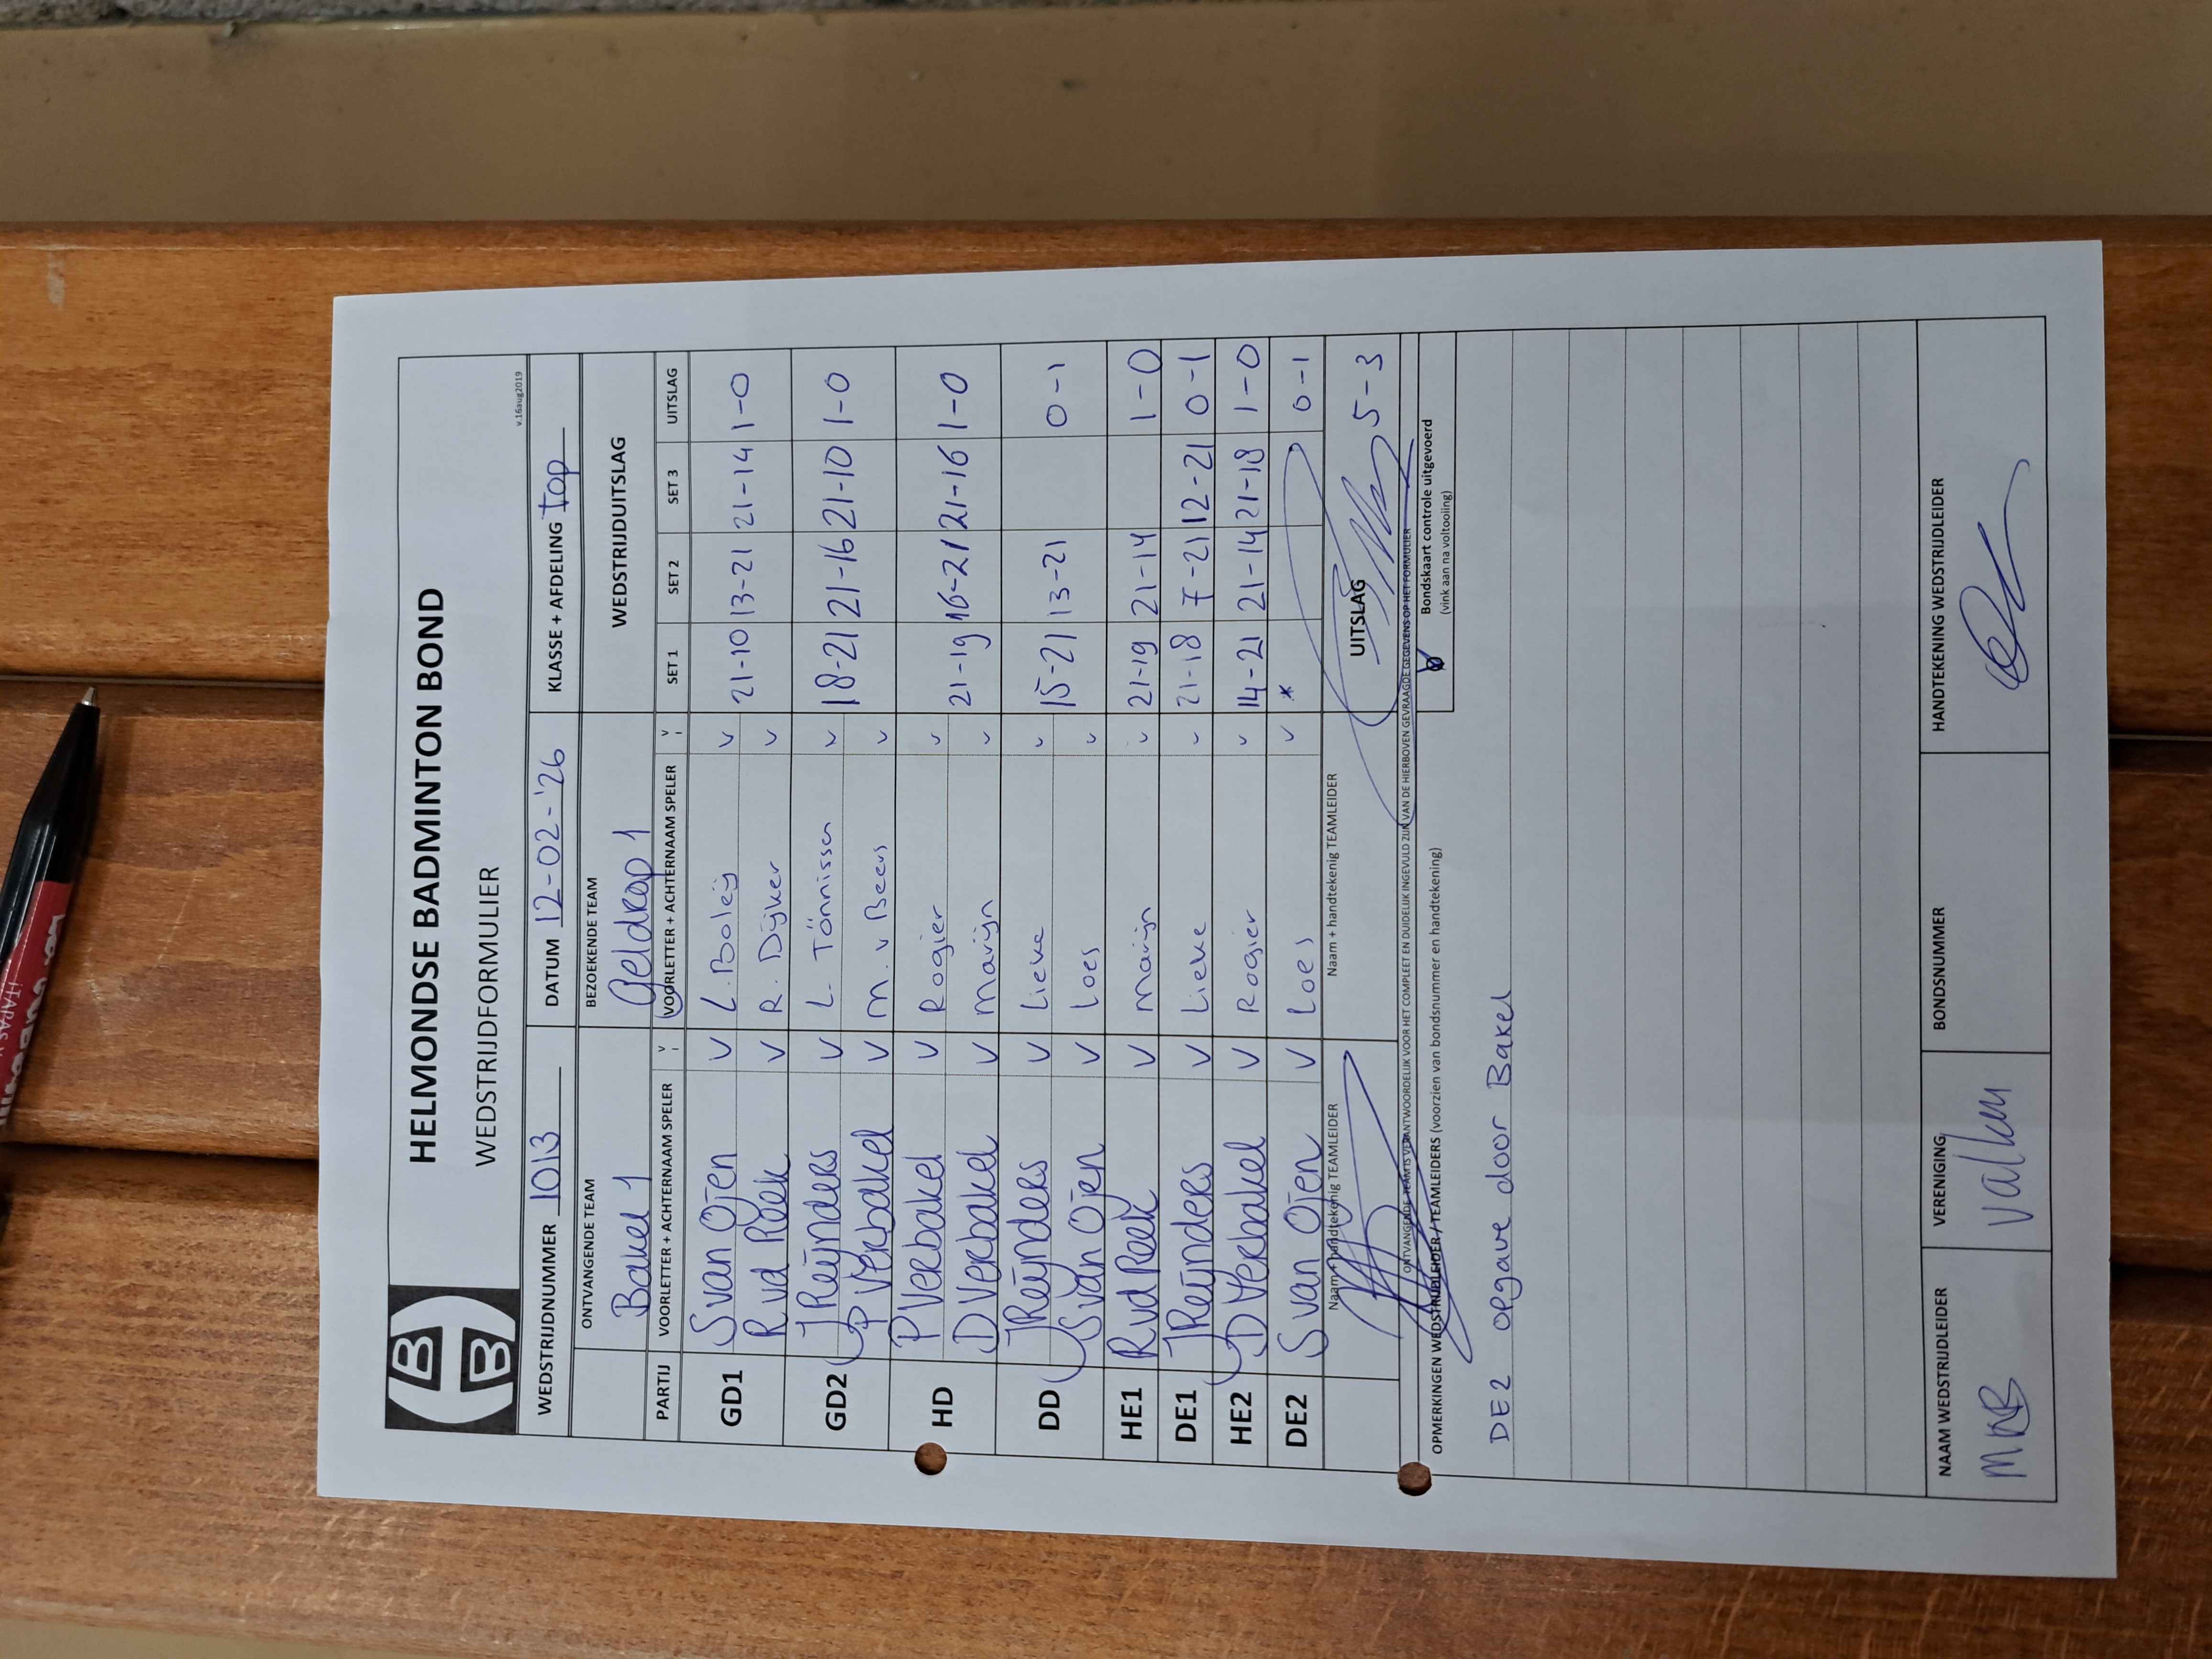 HELMONDSE BADMINTON BOND
WEDSTRIJDFORMULIER
v.16aug2019
WEDSTRIJDNUMMER 1013 DATUM 12-02-'26 KLASSE + AFDELING Top
ONTVANGENDE TEAM BEZOEKENDE TEAM WEDSTRIJDUITSLAG
Bakel 1 Geldrop 1
PARTIJ VOORLETTER + ACHTERNAAM SPELER V VOORLETTER + ACHTERNAAM SPELER V SET 1 SET 2 SET 3 UITSLAG
GD1 S van Oijen V L. Boleij v 21-10 13-21 21-14 1-0
R vd Reek V R. Dijker v
GD2 J Reijnders V L. Tönnissen v 18-21 21-16 21-10 1-0
P Verbakel V M. v Beers v
HD P Verbakel V Rogier v 21-19 16-21 21-16 1-0
D Verbakel V Marijn v
DD J Reijnders V Lieke v 15-21 13-21 0-1
S van Oijen V Loes v
HE1 R vd Reek V Marijn v 21-19 21-14 1-0
DE1 J Reijnders V Lieke v 21-18 7-21 12-21 0-1
HE2 D Verbakel V Rogier v 14-21 21-14 21-18 1-0
DE2 S van Oijen V Loes v * 0-1
Naam + handtekenig TEAMLEIDER Naam + handtekenig TEAMLEIDER UITSLAG 5-3
ONTVANGENDE TEAM IS VERANTWOORDELIJK VOOR HET COMPLEET EN DUIDELIJK INGEVULD ZIJN VAN DE HIERBOVEN GEVRAAGDE GEGEVENS OP HET FORMULIER
OPMERKINGEN WEDSTRIJDLEIDER / TEAMLEIDERS (voorzien van bondsnummer en handtekening)
Bondskaart controle uitgevoerd
(vink aan na voltooiing)
DE2 opgave door Bakel
NAAM WEDSTRIJDLEIDER VERENIGING BONDSNUMMER HANDTEKENING WEDSTRIJDLEIDER